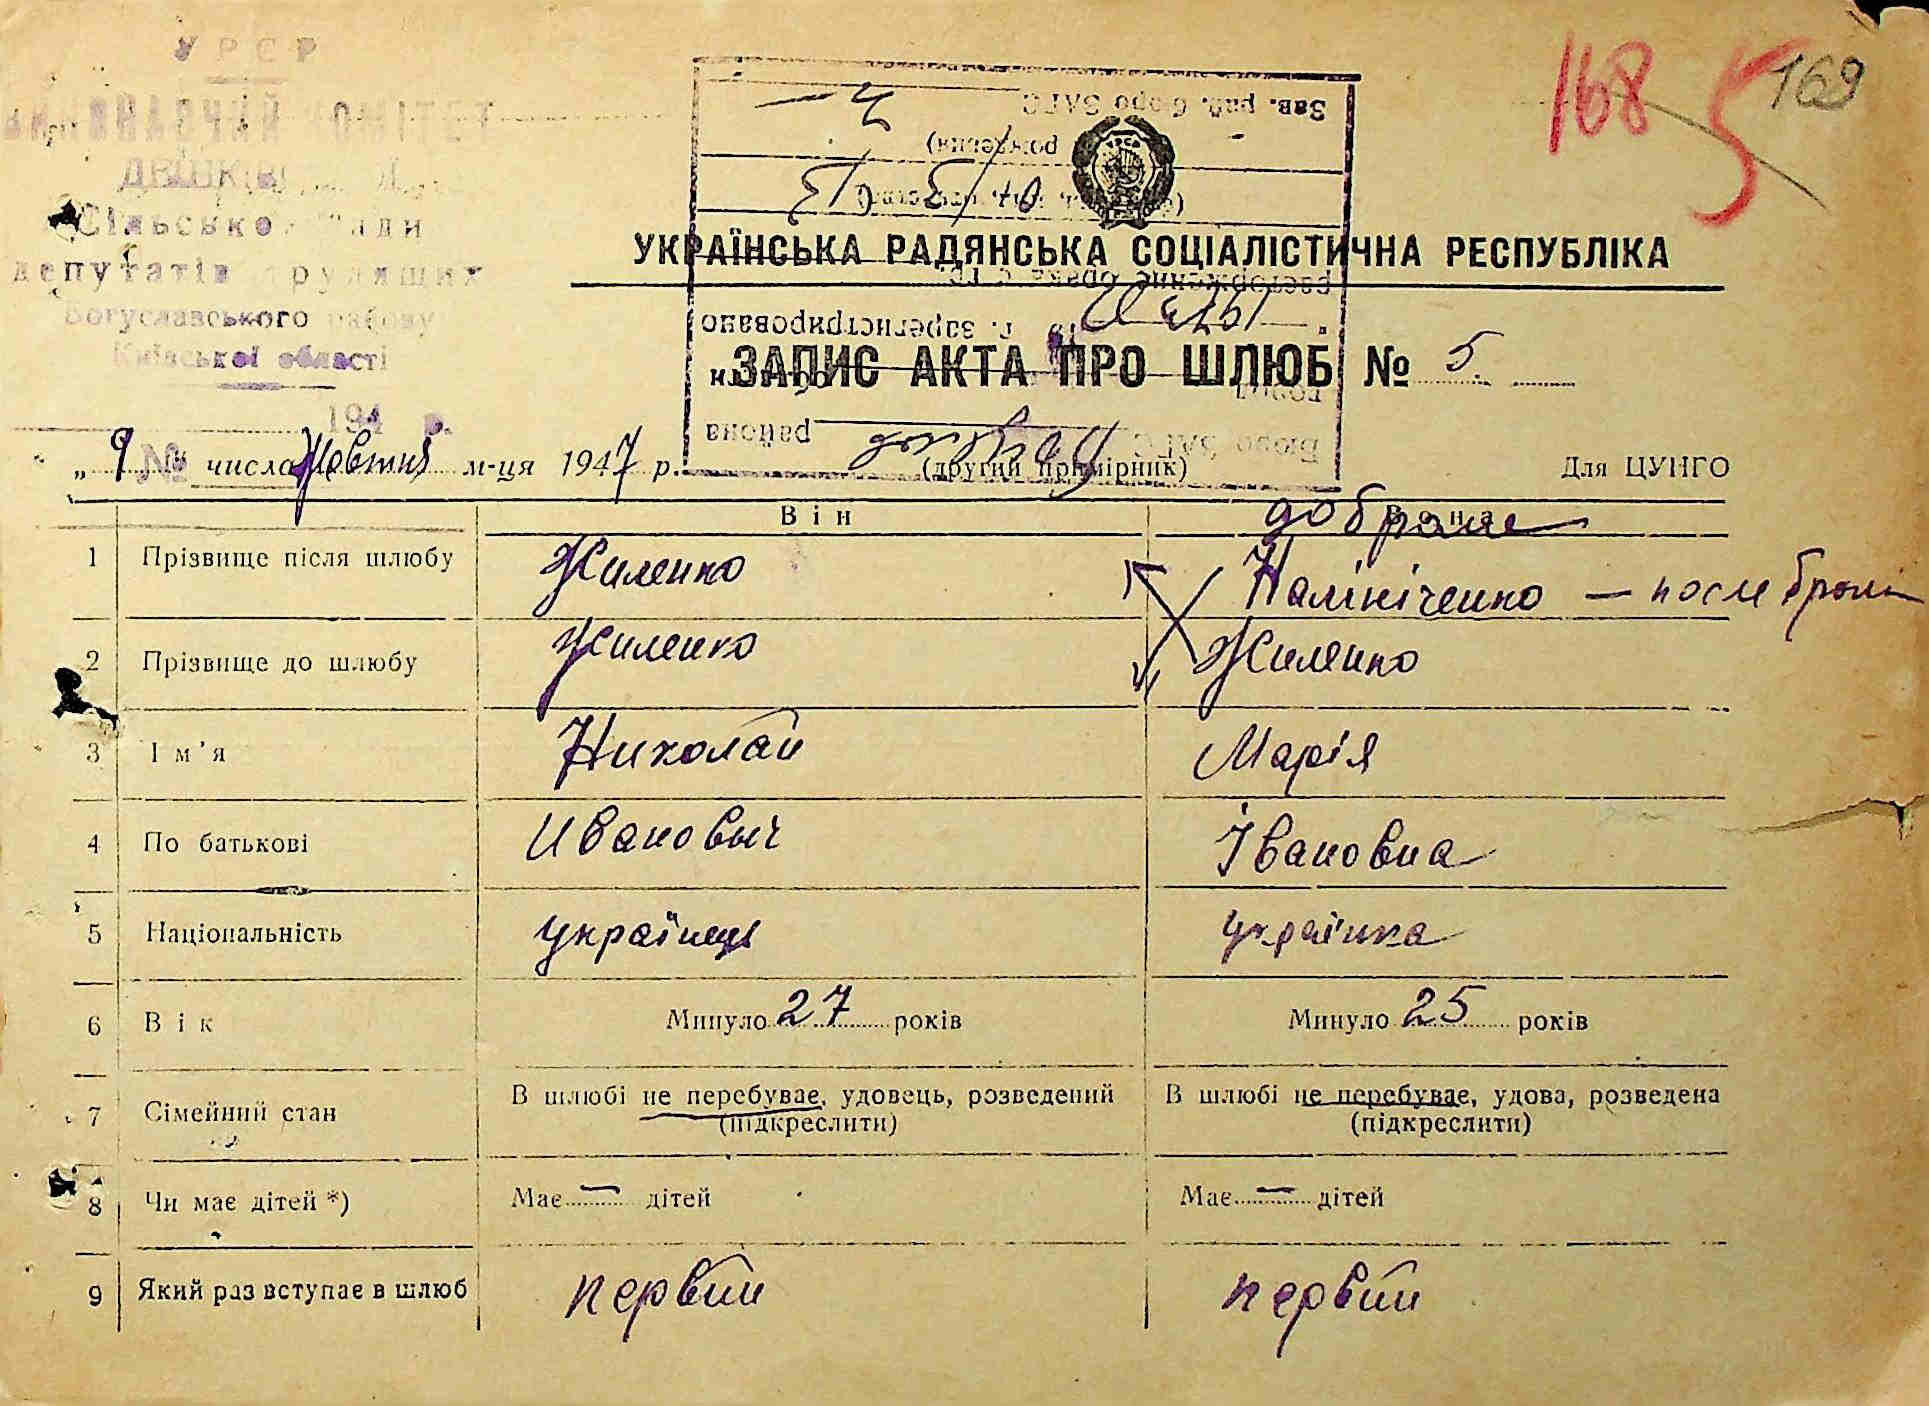 168 5 169
УРСР
ВИКОНАВЧИЙ КОМІТЕТ
Сільської Ради
депутатів трудящих
Богуславського району
Київської області
194 р.
№
Зав. рай. бюро ЗАГС
рождения)
расторжение брака с гр.
г. зарегистрировано
города
района
Бюро ЗАГС
УРСР
УКРАЇНСЬКА РАДЯНСЬКА СОЦІАЛІСТИЧНА РЕСПУБЛІКА
ЗАПИС АКТА ПРО ШЛЮБ № 5
„ 9 " числа Жовтня м-ця 1947 р.
(другий примірник)
Для ЦУНГО
Він Вона
до брака
1 Прізвище після шлюбу Жиленко Калініченко — после брака
2 Прізвище до шлюбу Жиленко Жиленко
3 Ім'я Николай Марія
4 По батькові Ивановыч Івановна
5 Національність українець українка
6 Вік Минуло 27 років Минуло 25 років
7 Сімейний стан В шлюбі не перебуває, удовець, розведений В шлюбі не перебуває, удова, розведена
(підкреслити) (підкреслити)
8 Чи має дітей *) Має — дітей Має — дітей
9 Який раз вступає в шлюб первий первий